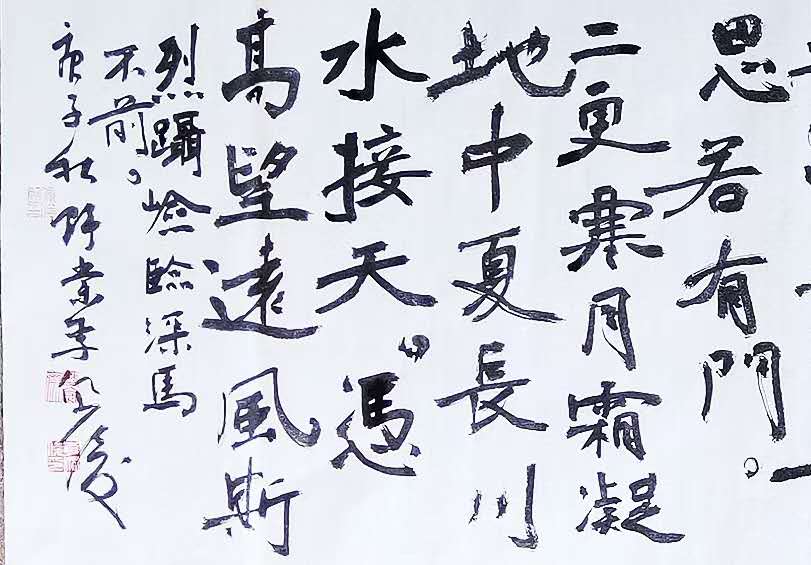 思若有門。
二更寒月霜凝
地中夏長川
水接天。憑
高望遠風斯
烈躡嶮臨深馬
不前。
庚子秋